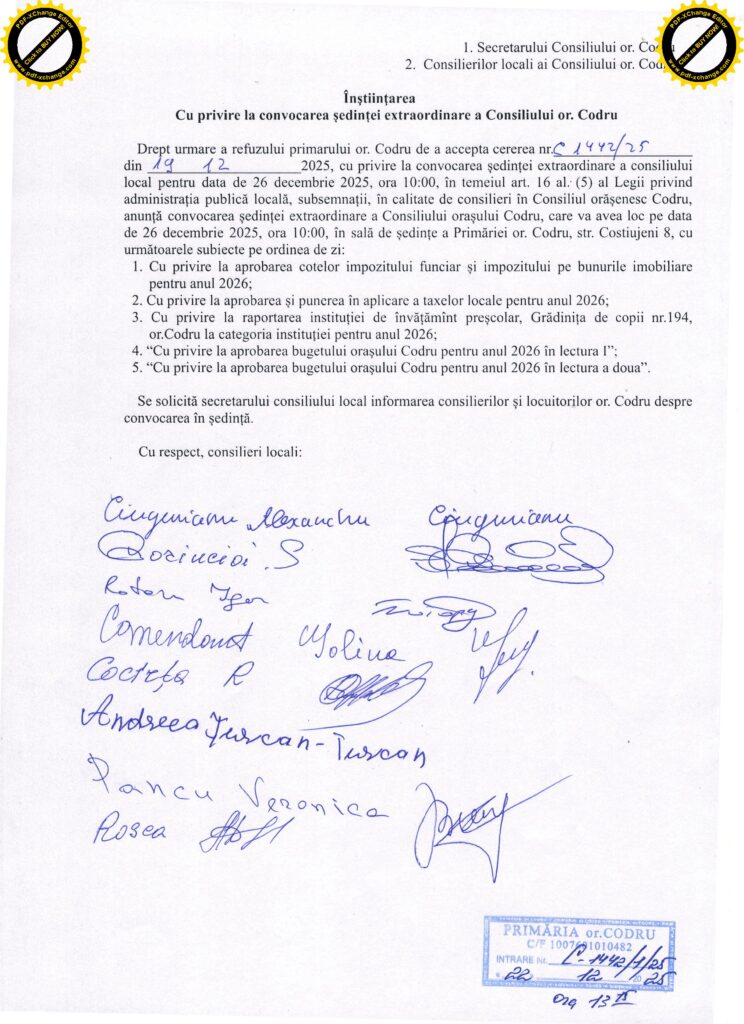 PDF-XChange Editor
Click to BUY NOW!
www.pdf-xchange.com
PDF-XChange Editor
Click to BUY NOW!
www.pdf-xchange.com
1. Secretarului Consiliului or. Codru
2. Consilierilor locali ai Consiliului or. Codru
Înştiinţarea
Cu privire la convocarea şedinţei extraordinare a Consiliului or. Codru
Drept urmare a refuzului primarului or. Codru de a accepta cererea nr. C 1442/25
din 19 12 2025, cu privire la convocarea şedinţei extraordinare a consiliului
local pentru data de 26 decembrie 2025, ora 10:00, în temeiul art. 16 al. (5) al Legii privind
administraţia publică locală, subsemnaţii, în calitate de consilieri în Consiliul orăşenesc Codru,
anunţă convocarea şedinţei extraordinare a Consiliului oraşului Codru, care va avea loc pe data
de 26 decembrie 2025, ora 10:00, în sală de şedinţe a Primăriei or. Codru, str. Costiujeni 8, cu
următoarele subiecte pe ordinea de zi:
1. Cu privire la aprobarea cotelor impozitului funciar şi impozitului pe bunurile imobiliare
pentru anul 2026;
2. Cu privire la aprobarea şi punerea în aplicare a taxelor locale pentru anul 2026;
3. Cu privire la raportarea instituţiei de învăţămînt preşcolar, Grădiniţa de copii nr.194,
or.Codru la categoria instituţiei pentru anul 2026;
4. “Cu privire la aprobarea bugetului oraşului Codru pentru anul 2026 în lectura I”;
5. “Cu privire la aprobarea bugetului oraşului Codru pentru anul 2026 în lectura a doua”.
Se solicită secretarului consiliului local informarea consilierilor şi locuitorilor or. Codru despre
convocarea în şedinţă.
Cu respect, consilieri locali:
Alexandru
S
Rotaru Igor
Comendant
R
Andreea Ţurcan-Turcan
Pancu Veronica
Rosca
PRIMĂRIA or.CODRU
C/F 1007601010482
INTRARE Nr. C-1442/1/25
22 12 2025
Ora 13 15